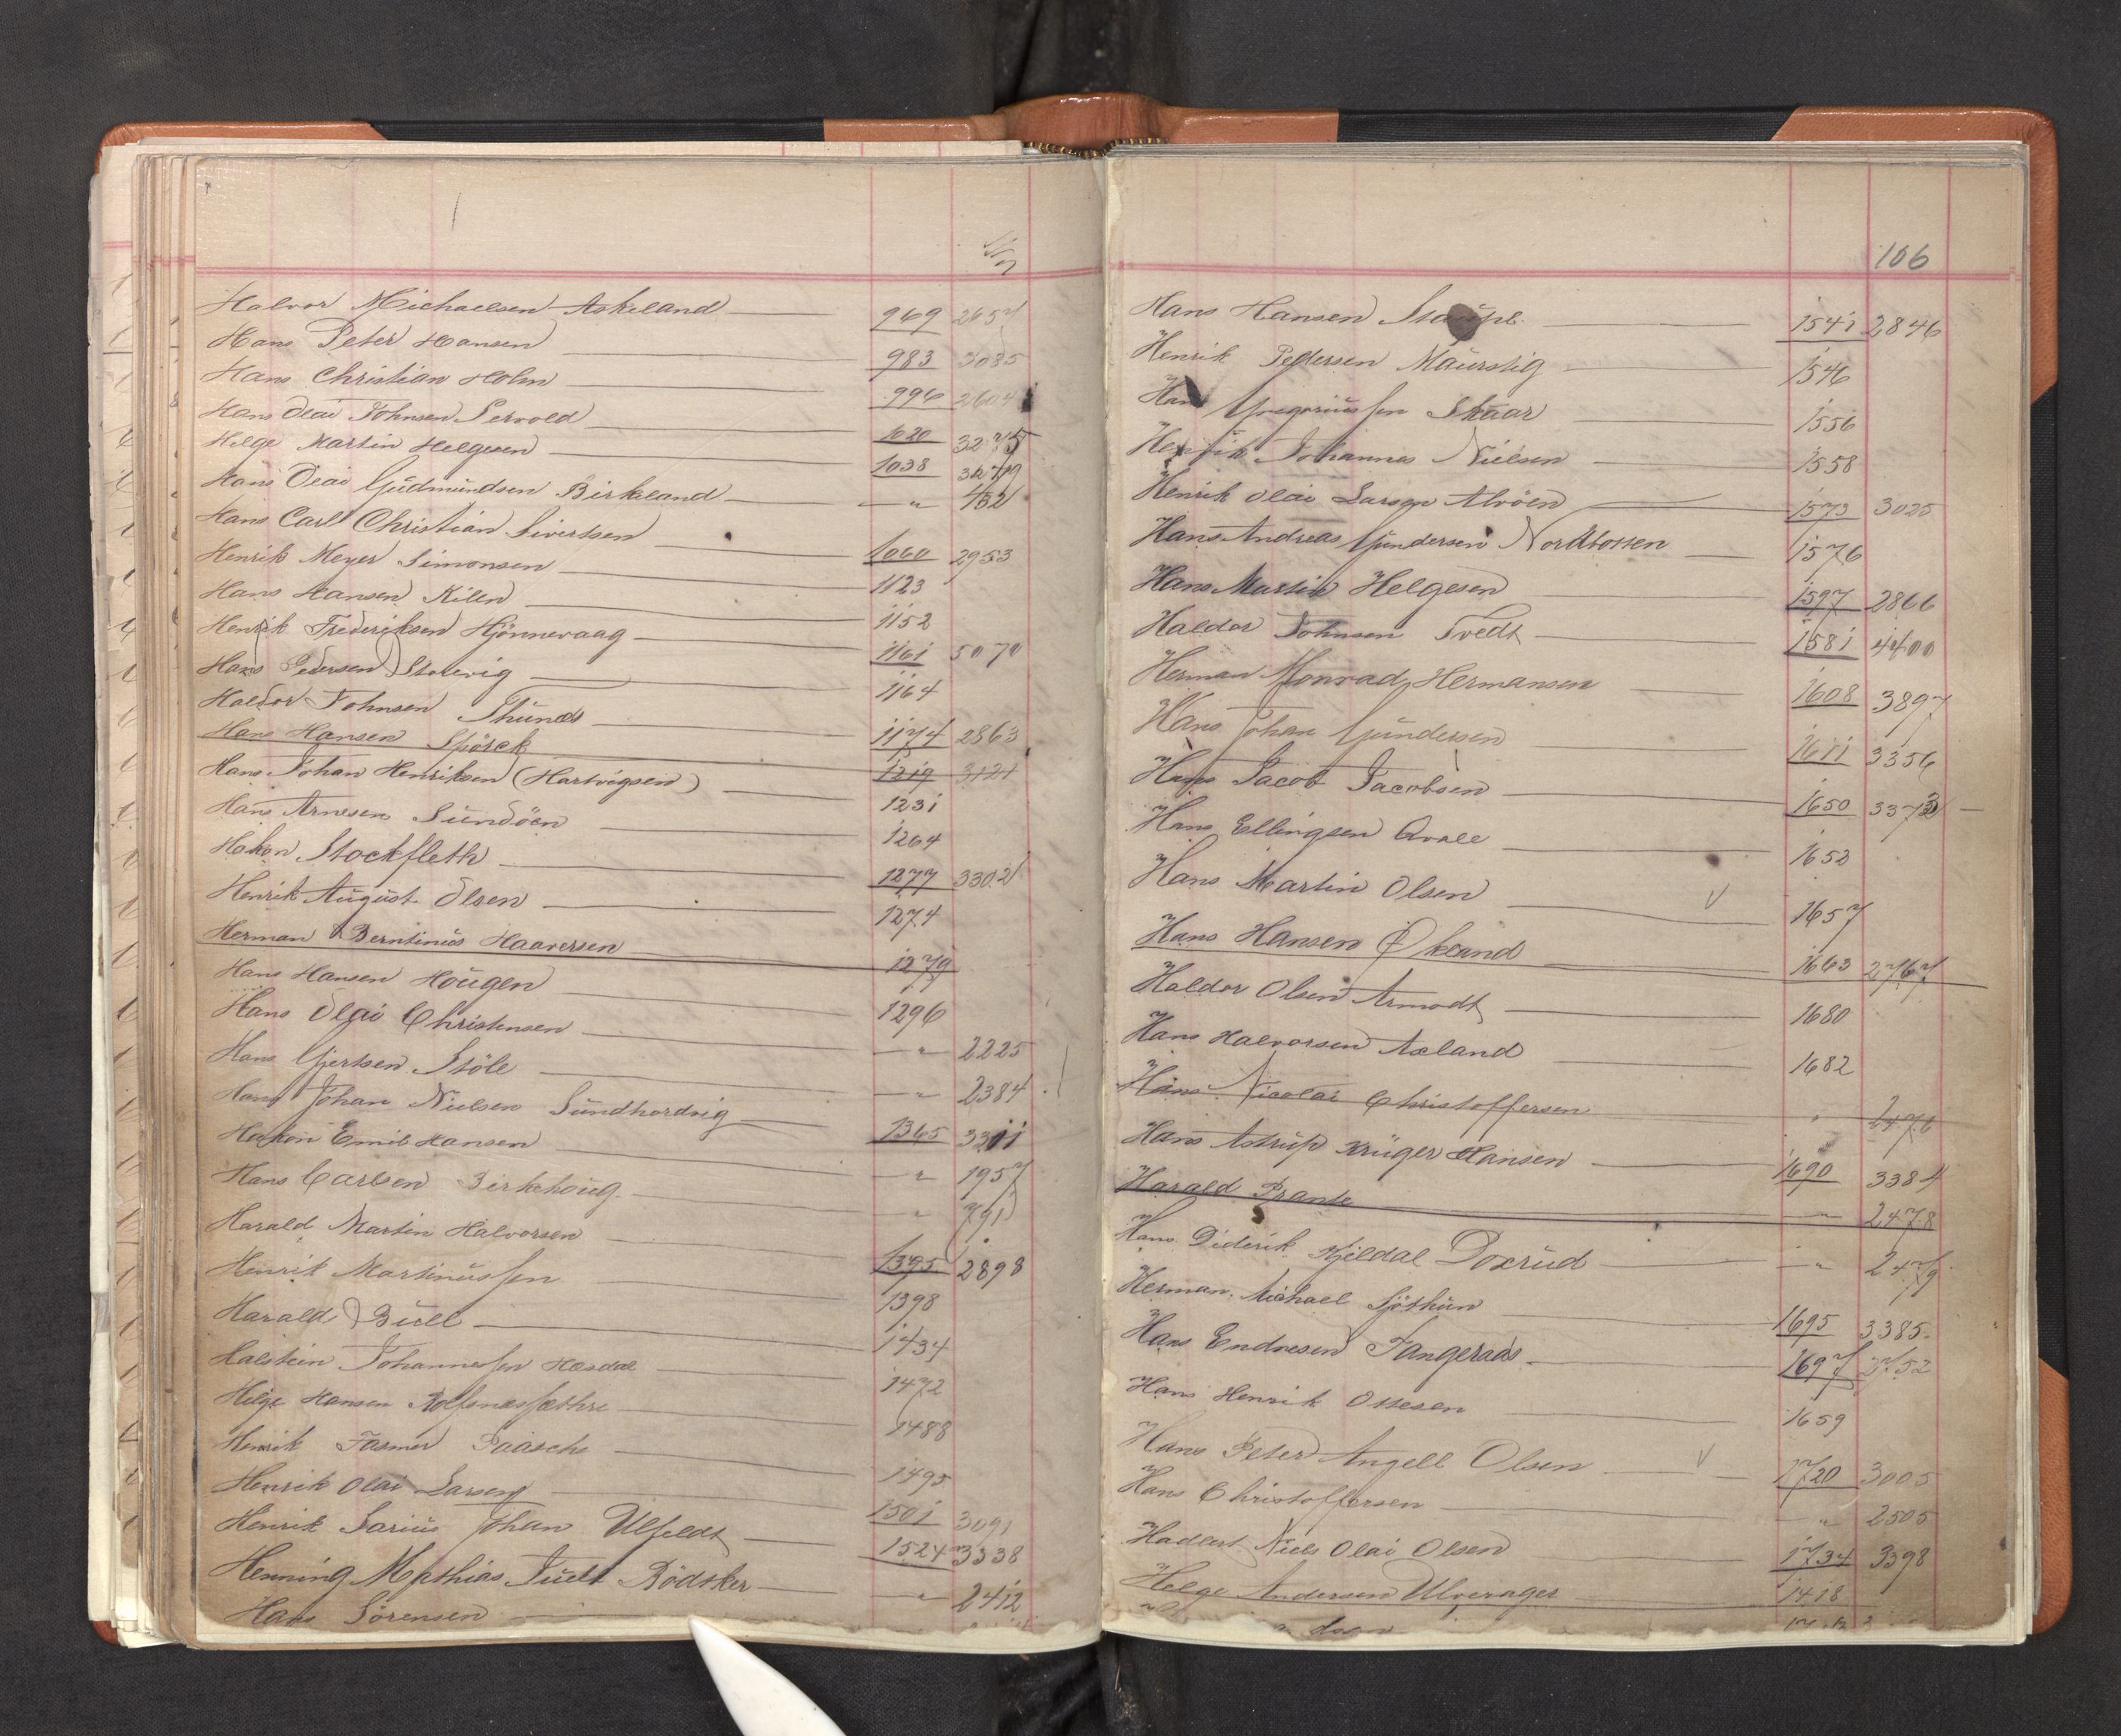 Halvor Michaelsen Askeland 969 2657
Hans Peter Hansen 983 3085
Hans Christian Holm 996 2604
Hans Olai Johnsen Servold 1020 3275
Helge Martin Helgesen 1038 3279
Hans Olai Gudmundsen Birkeland " 452
Hans Carl Christian Sivertsen 1060 2953
Henrik Meyer Simonsen 1123
Hans Hansen Kilen 1152
Henrik Frederiksen Hjönnevaag 1161 5070
Hans Pedersen Storevig 1164
Haldor Johnsen Thunes 1174 2863
Hans Hansen Spörck 1219 3121
Hans Johan Henriksen (Hartvigsen) 1231
Hans Arnesen Sundöen 1264
Hakon Stockfleth 1277 3302
Henrik August Olsen 1274
Herman Berntinus Haaversen 1279
Hans Hansen Hougen 1296
Hans Olai Christensen " 2225
Hans Gjertsen Stöle " 2384
Hans Johan Nielsen Sundhordvig 1365 3311
Haakon Emil Hansen " 1957
Hans Carlsen Birkehoug " 791
Harald Martin Halvorsen 1395 2898
Henrik Martinussen 1398
Harald Büll 1434
Halstein Johannessen Hasdal 1472
Helge Hansen Rolfsnessæthre 1488
Henrik Fasmer Paasche 1495
Henrik Olai Larsen 1501 3091
Henrik Sarius Johan Ulfeldt 1524 3338
Henning Mathias Juell Bödtker " 2412
Hans Sörensen
106
Hans Hansen 1541 2846
Henrik Pedersen Maurstig 1546
Hans Gregoriussen Skaar 1556
Henrik Johannes Nielsen 1558
Henrik Olai Larsen Alvöen 1573 3025
Hans Andreas Gundersen Nordtossen 1576
Hans Martin Helgesen 1597 2866
Haldor Johnsen Tvedt 1581 4400
Herman Monrad Hermansen 1608 3897
Hans Johan Gundersen 1611 3356
Hans Jacob Jacobsen 1650 3373
Hans Ellingsen Qvale 1652
Hans Martin Olsen V 1657
Hans Hansen Økland 1663 2767
Haldor Olsen Armodt 1680
Hans Halvorsen Axland 1682
Hans Nicolai Christoffersen " 2476
Hans Astrup Krüger Hansen 1690 3384
Harald Prante " 2478
Hans Diderik Kjeldal Doxrud " 2479
Herman Michael Sjöthun 1695 3385
Hans Endresen Tangeraas 1697 3752
Hans Henrik Ottesen 1659
Hans Peter Angell Olsen V 1720 3005
Hans Christoffersen " 2505
Hadlert Niels Olai Olsen 1734 3398
Helge Andersen Ulvenager 1418